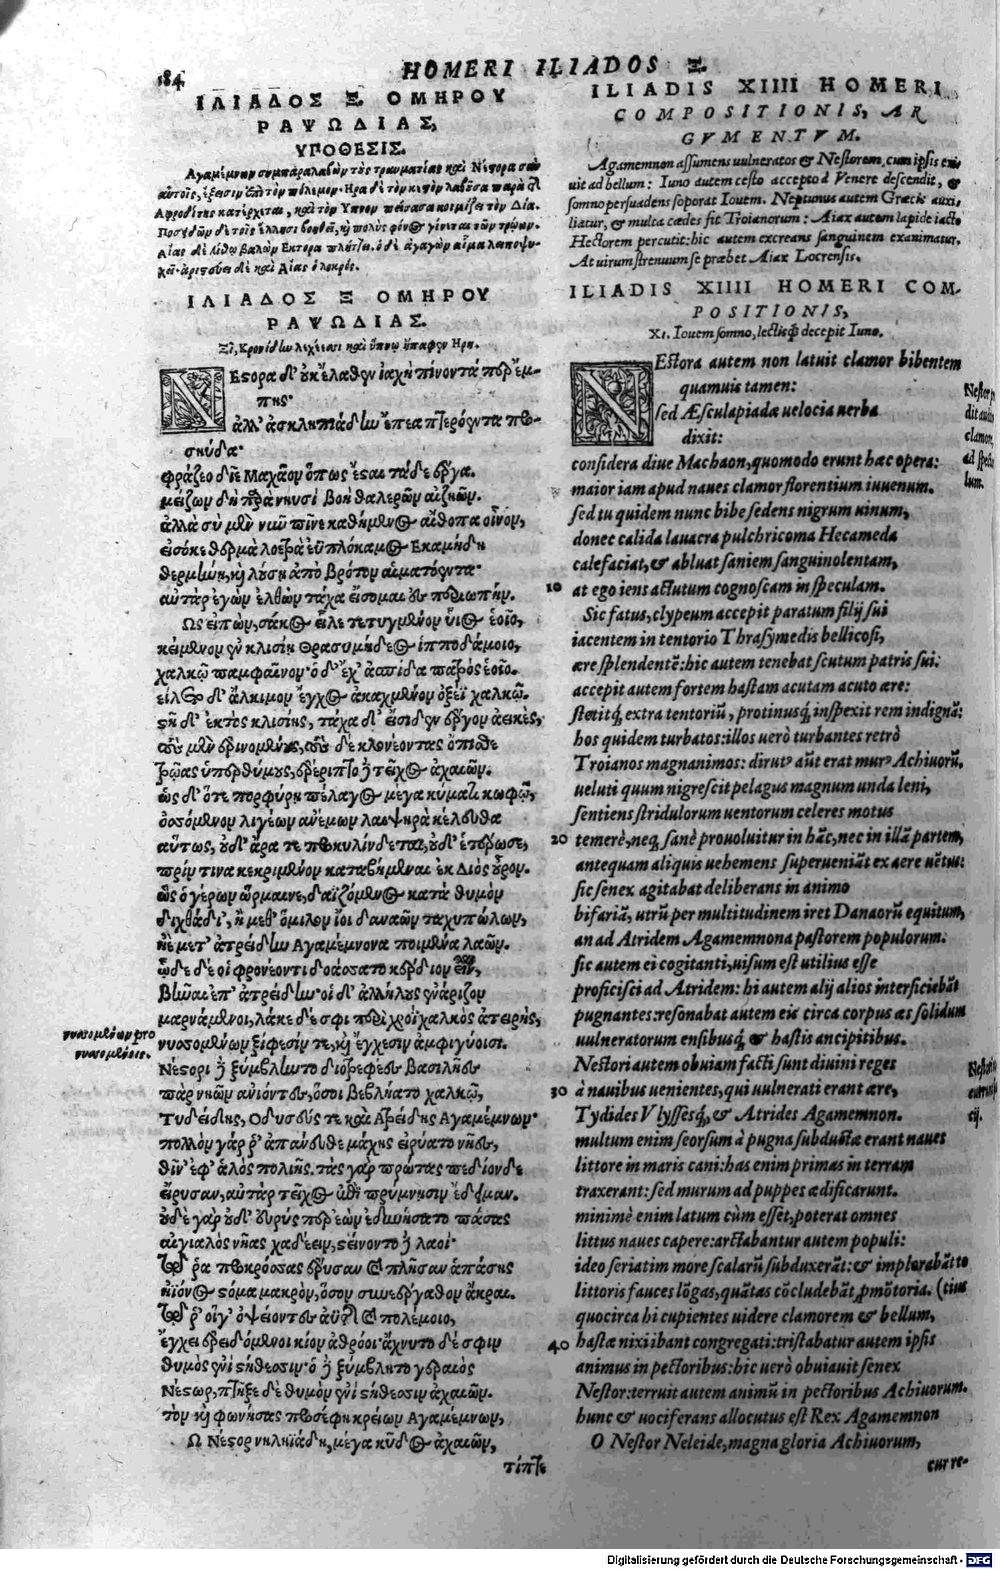 184
HOMERI ILIADOS Ξ.
ΙΛΙΑΔΟΣ Ξ ΟΜΗΡΟΥ
ΡΑΨΩΔΙΑΣ,
ΥΠΟΘΕΣΙΣ.
Αγαμέμνων συμπαραλαβὼν τὸς τραυματίας καὶ Νέστορα σὺν
αὐτοῖς, ἔξεισιν ἐπὶ τὸν πόλεμον. Ηρα δὲ τὸν κεστὸν λαβοῦσα παρὰ τῆς
Αφροδίτης κατέρχεται, καὶ τὸν Υπνον πείσασα κοιμίζει τὸν Δία.
Ποσειδῶν δὲ τοῖς ἕλλησι βοηθεῖ, καὶ πολὺς φόνος γίνεται τῶν τρώων.
Αἴας δὲ λίθῳ βαλὼν Εκτορα πλήττει. ὁ δὲ ἀναγὼν αἷμα λιποψυ-
χεῖ. ἀριστεύει δὲ καὶ Αἴας ὁ λοκρός.
ΙΛΙΑΔΟΣ Ξ ΟΜΗΡΟΥ
ΡΑΨΩΔΙΑΣ.
Ξῖ, Κρονίδην λεχέεσσι καὶ ὕπνῳ ἤπαφεν Ηρη.
ΝΕστορα δ' οὐκ ἔλαθεν ἰαχὴ πίνοντά περ ἔμ-
πης·
ἀλλ' ἀσκληπιάδην ἔπεα πτερόεντα προ-
σηύδα·
φράζεο δῖε Μαχᾶον ὅπως ἔσαι τάδε ἔργα.
μείζων δὴ παρὰ νηυσὶ βοὴ θαλερῶν αἰζηῶν.
ἀλλὰ σὺ μὲν νῦν πῖνε καθήμενος αἴθοπα οἶνον,
εἰσόκε θερμὰ λοετρὰ ἐϋπλόκαμος Εκαμήδη
θερμήνῃ, καὶ λούσῃ ἀπὸ βρότον αἱματόεντα·
αὐτὰρ ἐγὼν ἐλθὼν τάχα εἴσομαι ἐς περιωπήν.
Ως εἰπὼν, σάκος εἷλε τετυγμένον υἷος ἑοῖο,
κείμενον ἐν κλισίῃ Θρασυμήδεος ἱπποδάμοιο,
χαλκῷ παμφαῖνον· ὁ δ' ἔχ' ἀσπίδα πατρὸς ἑοῖο.
εἵλετο δ' ἄλκιμον ἔγχος ἀκαχμένον ὀξέϊ χαλκῷ.
στῆ δ' ἐκτὸς κλισίης, τάχα δ' εἴσιδεν ἔργον ἀεικὲς,
τοὺς μὲν ὀρινομένους, τοὺς δὲ κλονέοντας ὄπισθε
τρῶας ὑπερθύμους, ἐρέριπτο δὲ τεῖχος ἀχαιῶν.
ὡς δ' ὅτε πορφύρῃ πέλαγος μέγα κύματι κωφῷ,
ὀσσόμενον λιγέων ἀνέμων λαιψηρὰ κέλευθα
αὔτως, οὐδ' ἄρα τε προκυλίνδεται, οὐδ' ἑτέρωσε,
πρίν τινα κεκριμένον καταβήμεναι ἐκ Διὸς οὖρον.
ὣς ὁ γέρων ὥρμαινε, δαϊζόμενος κατὰ θυμὸν
διχθάδι', ἢ μεθ' ὅμιλον ἴοι δαναῶν ταχυπώλων,
ἠὲ μετ' ἀτρείδην Αγαμέμνονα ποιμένα λαῶν.
ὧδε δέ οἱ φρονέοντι δοάσσατο κέρδιον εἶναι,
βῆναι ἐπ' ἀτρείδην· οἱ δ' ἀλλήλους ἐνάριζον
μαρνάμενοι, λάκε δέ σφι περὶ χροῒ χαλκὸς ἀτειρὴς,
νυσσομένων ξίφεσίν τε, καὶ ἔγχεσιν ἀμφιγύοισι.
νυσσομένων pro
νυσσομένοις.
Νέστορι δὲ ξύμβληντο διοτρεφέες βασιλῆες
πὰρ νηῶν ἀνιόντες, ὅσοι βεβλήατο χαλκῷ,
Τυδείδης, Οδυσσεύς τε καὶ Ατρείδης Αγαμέμνων·
πολλὸν γάρ ῥ' ἀπάνευθε μάχης εἰρύατο νῆες,
θῖν' ἐφ' ἁλὸς πολιῆς. τὰς γὰρ πρώτας πεδίονδε
εἴρυσαν, αὐτὰρ τεῖχος ἐπὶ πρυμνῇσιν ἔδειμαν.
οὐδὲ γὰρ οὐδ' εὐρύς περ ἐὼν ἐδυνήσατο πάσας
αἰγιαλὸς νῆας χαδέειν, στείνοντο δὲ λαοί·
τῷ ῥα προκρόσσας ἔρυσαν καὶ πλῆσαν ἁπάσης
ἠϊόνος στόμα μακρὸν, ὅσον συνεέργαθον ἄκραι.
τῷ ῥ' οἵγ' ὀψείοντες ἀϋτῆς καὶ πολέμοιο,
ἔγχει ἐρειδόμενοι κίον ἀθρόοι· ἄχνυτο δέ σφιν
θυμὸς ἐνὶ στήθεσσιν· ὁ δὲ ξύμβλητο γεραιὸς
Νέστωρ, πτῆξε δὲ θυμὸν ἐνὶ στήθεσσιν ἀχαιῶν.
τὸν καὶ φωνήσας προσέφη κρείων Αγαμέμνων,
Ω Νέστορ νηληϊάδη, μέγα κῦδος ἀχαιῶν,
τίπτε
ILIADIS XIIII HOMERI
COMPOSITIONIS, AR
GVMENTVM.
Agamemnon assumens uulneratos & Nestorem, cum ipsis exi
uit ad bellum: Iuno autem cesto accepto à Venere descendit, &
somno persuadens soporat Iouem. Neptunus autem Græcis auxi
liatur, & multa cædes fit Troianorum: Aiax autem lapide iacto
Hectorem percutit: hic autem excreans sanguinem exanimatur.
At uirum strenuum se præbet Aiax Locrensis.
ILIADIS XIIII HOMERI COM-
POSITIONIS,
Xi. Iouem somno, lectisq́; decepit Iuno.
NEstora autem non latuit clamor bibentem
quamuis tamen:
sed Æsculapiadæ uelocia uerba
dixit:
considera diue Machaon, quomodo erunt hæc opera:
maior iam apud naues clamor florentium iuuenum.
sed tu quidem nunc bibe sedens nigrum uinum,
donec calida lauacra pulchricoma Hecameda
calefaciat, & abluat saniem sanguinolentam,
10 at ego iens actutum cognoscam in speculam.
Sic fatus, clypeum accepit paratum filij sui
iacentem in tentorio Thrasymedis bellicosi,
ære splendentē: hic autem tenebat scutum patris sui:
accepit autem fortem hastam acutam acuto ære:
stetitq́; extra tentoriū, protinusq́; inspexit rem indignā:
hos quidem turbatos: illos uerò turbantes retrò
Troianos magnanimos: dirut⁹ aūt erat mur⁹ Achiuorū.
ueluti quum nigrescit pelagus magnum unda leni,
sentiens stridulorum uentorum celeres motus
20 temerè, neq; sanè prouoluitur in hāc, nec in illā partem,
antequam aliquis uehemens superueniāt ex aere uētus:
sic senex agitabat deliberans in animo
bifariā, utrū per multitudinem iret Danaorū equitum,
an ad Atridem Agamemnona pastorem populorum.
sic autem ei cogitanti, uisum est utilius esse
proficisci ad Atridem: hi autem alij alios interficiebāt
pugnantes: resonabat autem eis circa corpus æs solidum
uulneratorum ensibusq́; & hastis ancipitibus.
Nestori autem obuiam facti sunt diuini reges
30 à nauibus uenientes, qui uulnerati erant ære,
Tydides Vlyssesq́;, & Atrides Agamemnon.
multum enim seorsum à pugna subductæ erant naues
littore in maris cani: has enim primas in terram
traxerant: sed murum ad puppes ædificarunt.
minimè enim latum cùm esset, poterat omnes
littus naues capere: arctabantur autem populi:
ideo seriatim more scalarū subduxerāt: & implerabāt to
littoris fauces lōgas, quātas cōcludebāt ꝓmōtoria. (tius
quocirca hi cupientes uidere clamorem & bellum,
40 hastæ nixi ibant congregati: tristabatur autem ipsis
animus in pectoribus: hic uerò obuiauit senex
Nestor: terruit autem animū in pectoribus Achiuorum.
hunc & uociferans allocutus est Rex Agamemnon
O Nestor Neleide, magna gloria Achiuorum,
cur re-
clamorem,
lum.
cij.
Digitalisierung gefördert durch die Deutsche Forschungsgemeinschaft - DFG